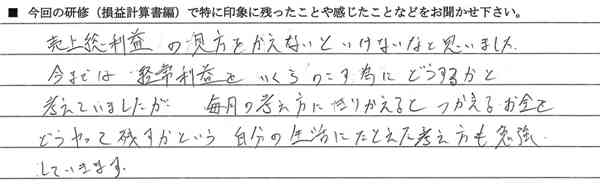 ■ 今回の研修（損益計算書編）で特に印象に残ったことや感じたことなどをお聞かせ下さい。
売上総利益 の見方をかえないといけないなと思いました。
今までは 経常利益を いくらのこす為に どうするかと
考えていましたが 毎月の考え方に きりかえると つかえるお金を
どうやって残すかという 自分の生活にたとえた考え方も勉強
していきます。